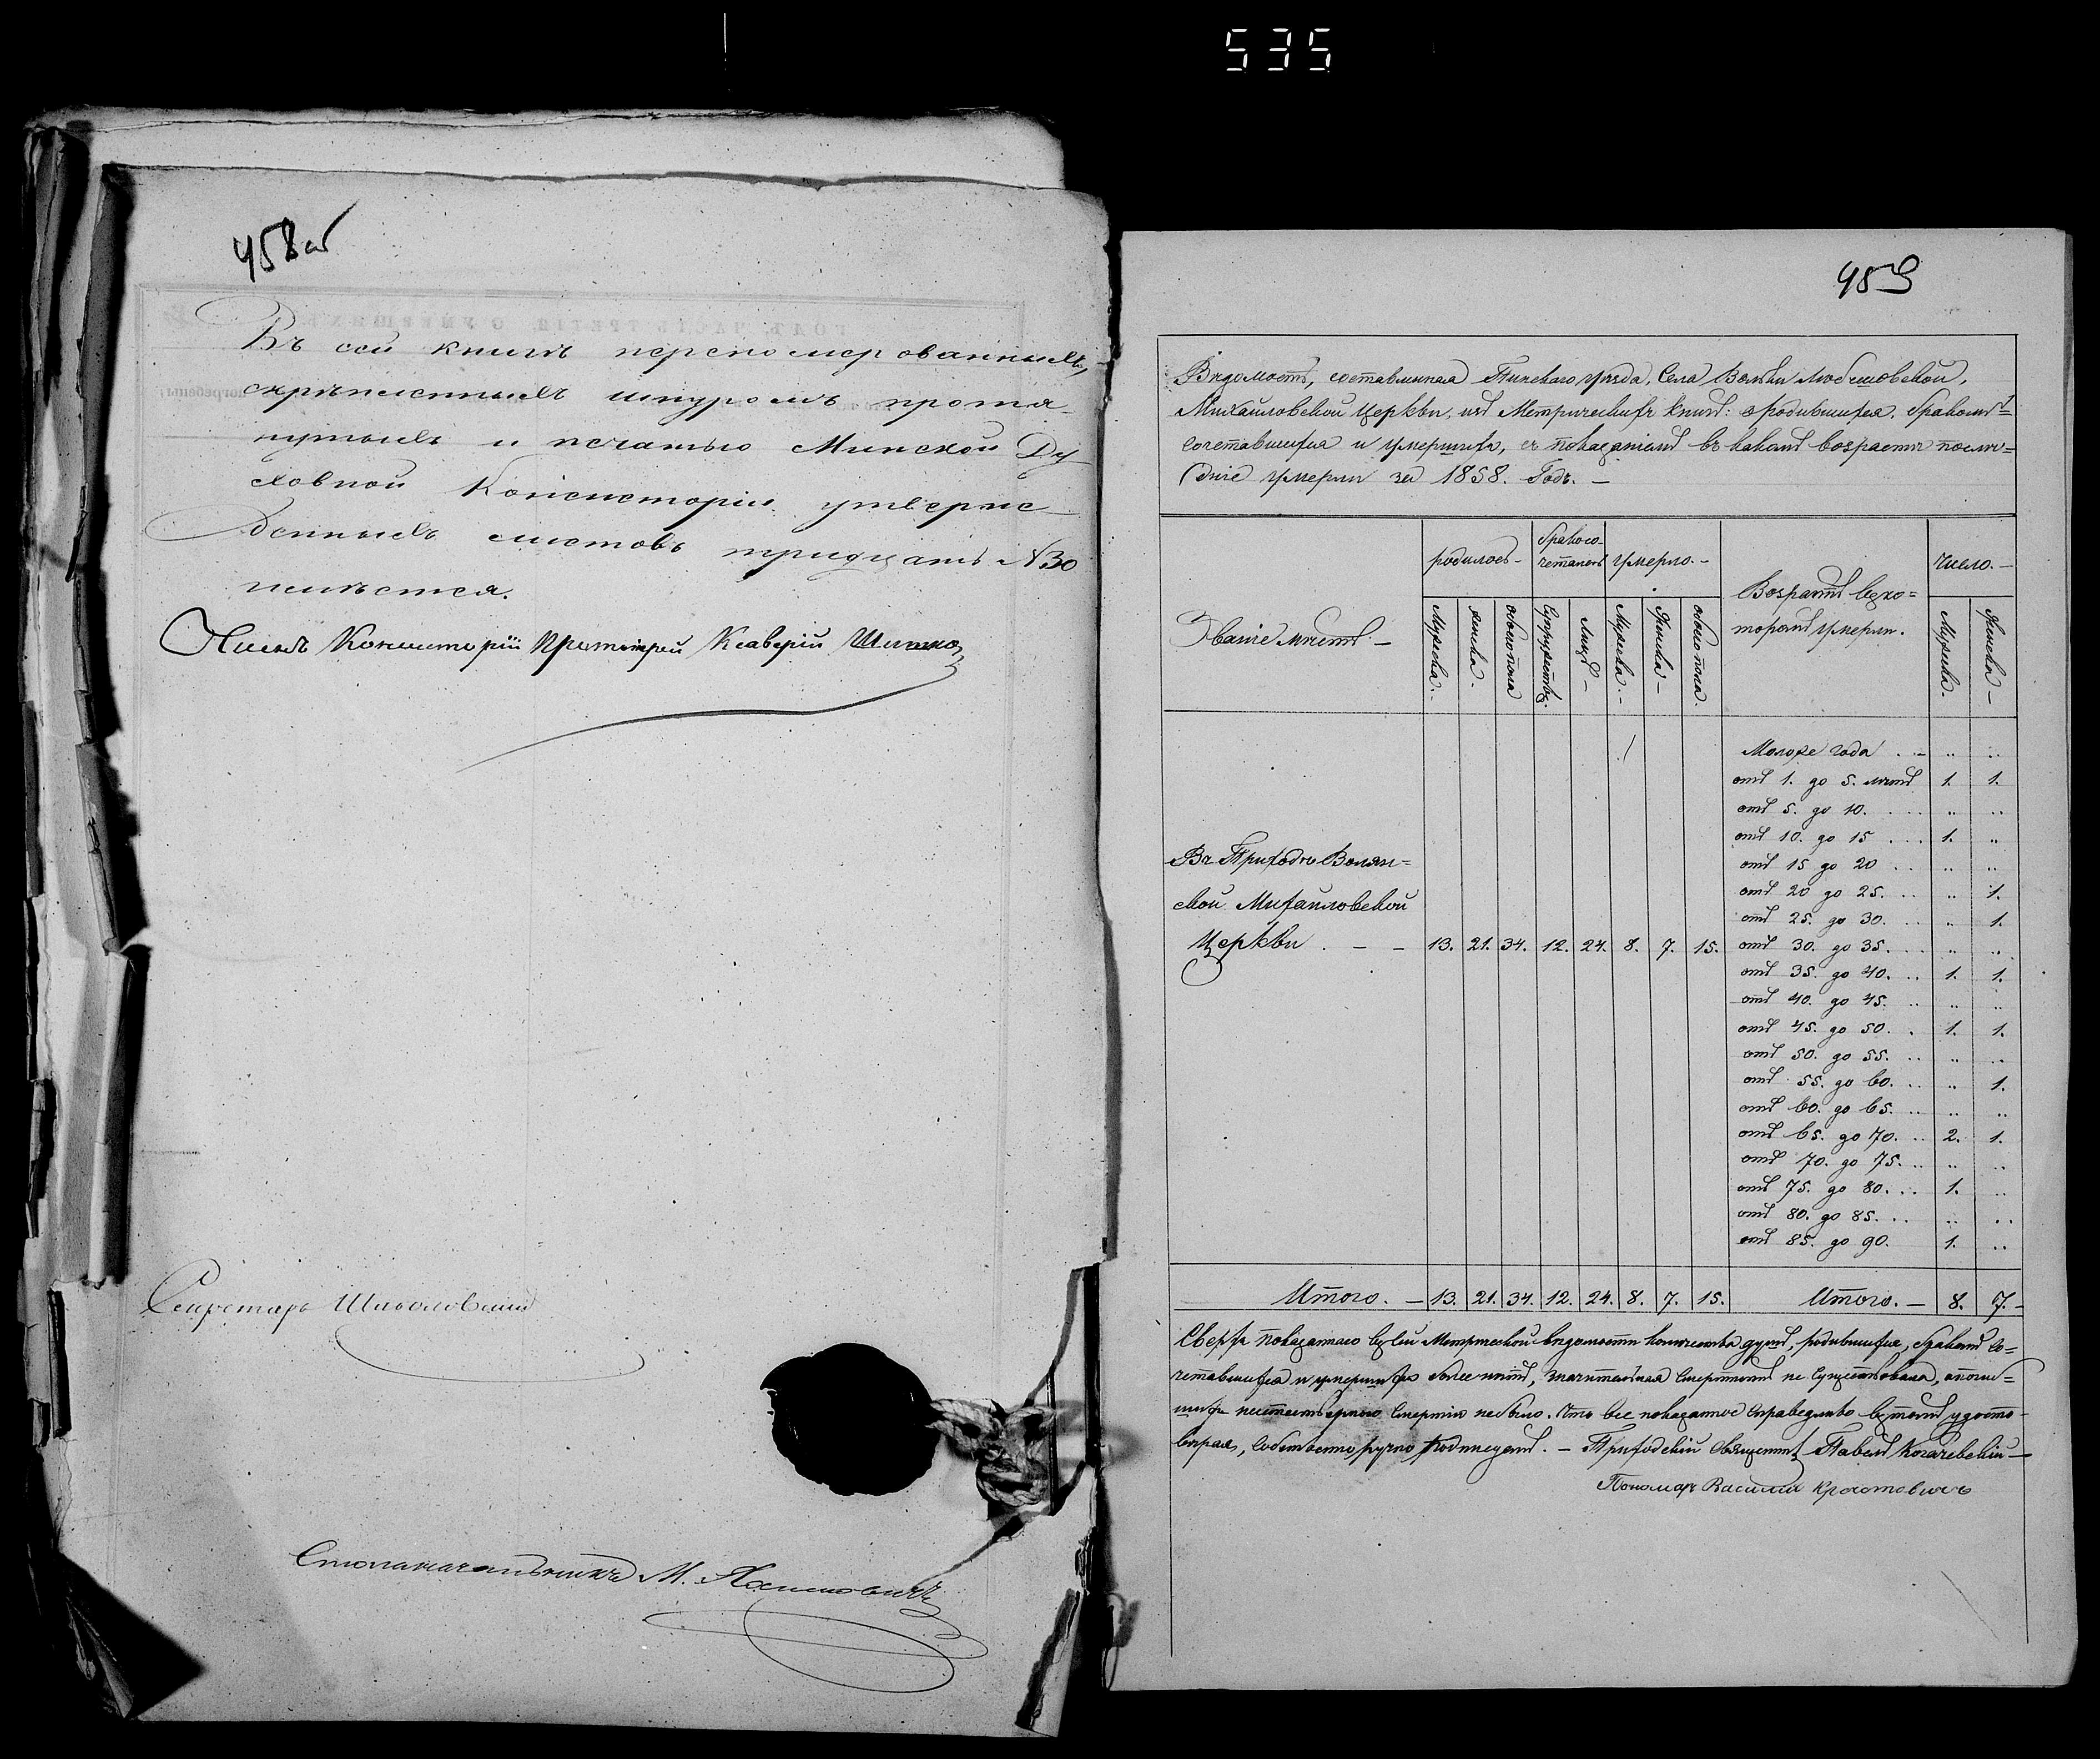 535
458 об
Въ сей книгѣ перенумерованныхъ,
скрѣпленныхъ шнуромъ протя-
нутыхъ и печатью Минской Ду-
ховной Консисторіи утверж-
денныхъ листовъ тридцать №30
имѣется.
Членъ Консисторіи Протоіерей Ксаверій
Секретарь
Столоначальникъ М.
459
Вѣдомость, составленная Пинскаго Уѣзда, Села Вольки Любешовской,
Михайловской Церкви, изъ Метрическихъ книгъ: о родившихся, бракомъ=
сочетавшихся и умершихъ, съ показаніемъ въ какомъ возрастѣ послѣ=
дніе умерли за 1858. Годъ. —
Званіе мѣстъ —
родилось —
Бракосо-
четалось
Умерло. —
Возрастъ въ ко=
торомъ умерли.
число. —
Мужска.
женска.
обоего пола
Супружествъ.
Лицъ —
Мужска. —
Женска —
обоего пола.
Мужска.
Женска —
Моложе года . — „ „
отъ 1. до 5. лѣтъ 1. 1.
отъ 5. до 10. . . . „ „
отъ 10. до 15 . . . 1. „
отъ 15 до 20 . . „ „
отъ 20 до 25. . . „ 1.
отъ 25. до 30. . . „ 1.
Въ Приходѣ Волян=
ской Михайловской
Церкви . — — 13. 21. 34. 12. 24. 8. 7. 15.
отъ 30. до 35. . . „ „
отъ 35. до 40. . . 1. 1.
отъ 40. до 45. . . „ „
отъ 45. до 50. . 1. 1.
отъ 50. до 55. . . „ „
отъ 55. до 60. . . „ 1.
отъ 60. до 65. . . „ „
отъ 65. до 70. . . 2. 1.
отъ 70. до 75. . . „ „
отъ 75. до 80. . . 1. „
отъ 80. до 85. . . „ „
отъ 85. до 90. 1. „
Итого. — 13. 21. 34. 12. 24. 8. 7. 15. Итого. — 8. 7. —
Сверхъ показаннаго въ сей Метрической вѣдомости количества душъ, родившихся, бракомъ со=
четавшихся и умершихъ болѣе нѣтъ, значительная смертность не существовала, и погиб=
шихъ неестественною смертію не было. Что все показанное справедливо въ томъ удосто-
вѣряя, собственноручно подписуемъ. — Приходскій Священникъ Павелъ
Пономарь Василій